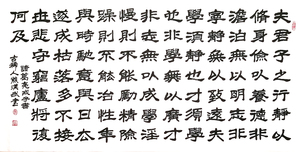 夫君子之行靜以
修身儉以養德非
澹泊無以明志非
寧靜無以致遠夫
學須靜也才須學
也非學無以廣才
非志無以成學淫
慢則不能勵精險
躁則不能冶性年
與時馳意與日去
遂成枯落多不接
世悲守窮廬將復
何及
諸葛亮誡子書